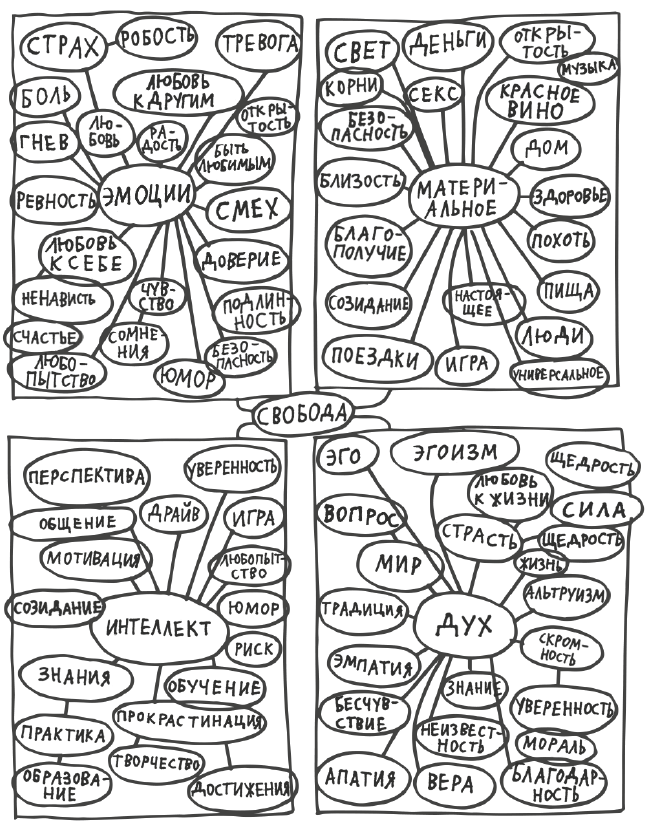 СТРАХ
РОБОСТЬ
ТРЕВОГА
БОЛЬ
ЛЮБОВЬ
К ДРУГИМ
ОТКРЫ-
ТОСТЬ
ГНЕВ
ЛЮ-
БОВЬ
РА-
ДОСТЬ
БЫТЬ
ЛЮБИМЫМ
РЕВНОСТЬ
ЭМОЦИИ
СМЕХ
ЛЮБОВЬ
К СЕБЕ
ДОВЕРИЕ
НЕНАВИСТЬ
ЧУВ-
СТВО
ПОДЛИН-
НОСТЬ
СЧАСТЬЕ
СОМНЕ-
НИЯ
БЕЗО-
ПАСНОСТЬ
ЛЮБО-
ПЫТСТВО
ЮМОР
СВЕТ
ДЕНЬГИ
ОТКРЫ-
ТОСТЬ
МУЗЫКА
КОРНИ
СЕКС
КРАСНОЕ
ВИНО
БЕЗО-
ПАСНОСТЬ
ДОМ
БЛИЗОСТЬ
МАТЕРИ-
АЛЬНОЕ
ЗДОРОВЬЕ
БЛАГО-
ПОЛУЧИЕ
ПОХОТЬ
СОЗИДАНИЕ
НАСТОЯ-
ЩЕЕ
ПИЩА
ЛЮДИ
ПОЕЗДКИ
ИГРА
УНИВЕРСАЛЬНОЕ
СВОБОДА
ПЕРСПЕКТИВА
УВЕРЕННОСТЬ
ОБЩЕНИЕ
ДРАЙВ
ИГРА
МОТИВАЦИЯ
ЛЮБОПЫТ-
СТВО
СОЗИДАНИЕ
ИНТЕЛЛЕКТ
ЮМОР
РИСК
ЗНАНИЯ
ОБУЧЕНИЕ
ПРАКТИКА
ПРОКРАСТИНАЦИЯ
ТВОРЧЕСТВО
ОБРАЗОВА-
НИЕ
ДОСТИЖЕНИЯ
ЭГО
ЭГОИЗМ
ЩЕДРОСТЬ
ЛЮБОВЬ
К ЖИЗНИ
СИЛА
ВОПРОС
СТРАСТЬ
ЩЕДРОСТЬ
МИР
ЖИЗНЬ
АЛЬТРУИЗМ
ТРАДИЦИЯ
ДУХ
СКРОМ-
НОСТЬ
ЭМПАТИЯ
ЗНАНИЕ
БЕСЧУВ-
СТВИЕ
УВЕРЕННОСТЬ
НЕИЗВЕСТ-
НОСТЬ
МОРАЛЬ
АПАТИЯ
ВЕРА
БЛАГОДАР-
НОСТЬ